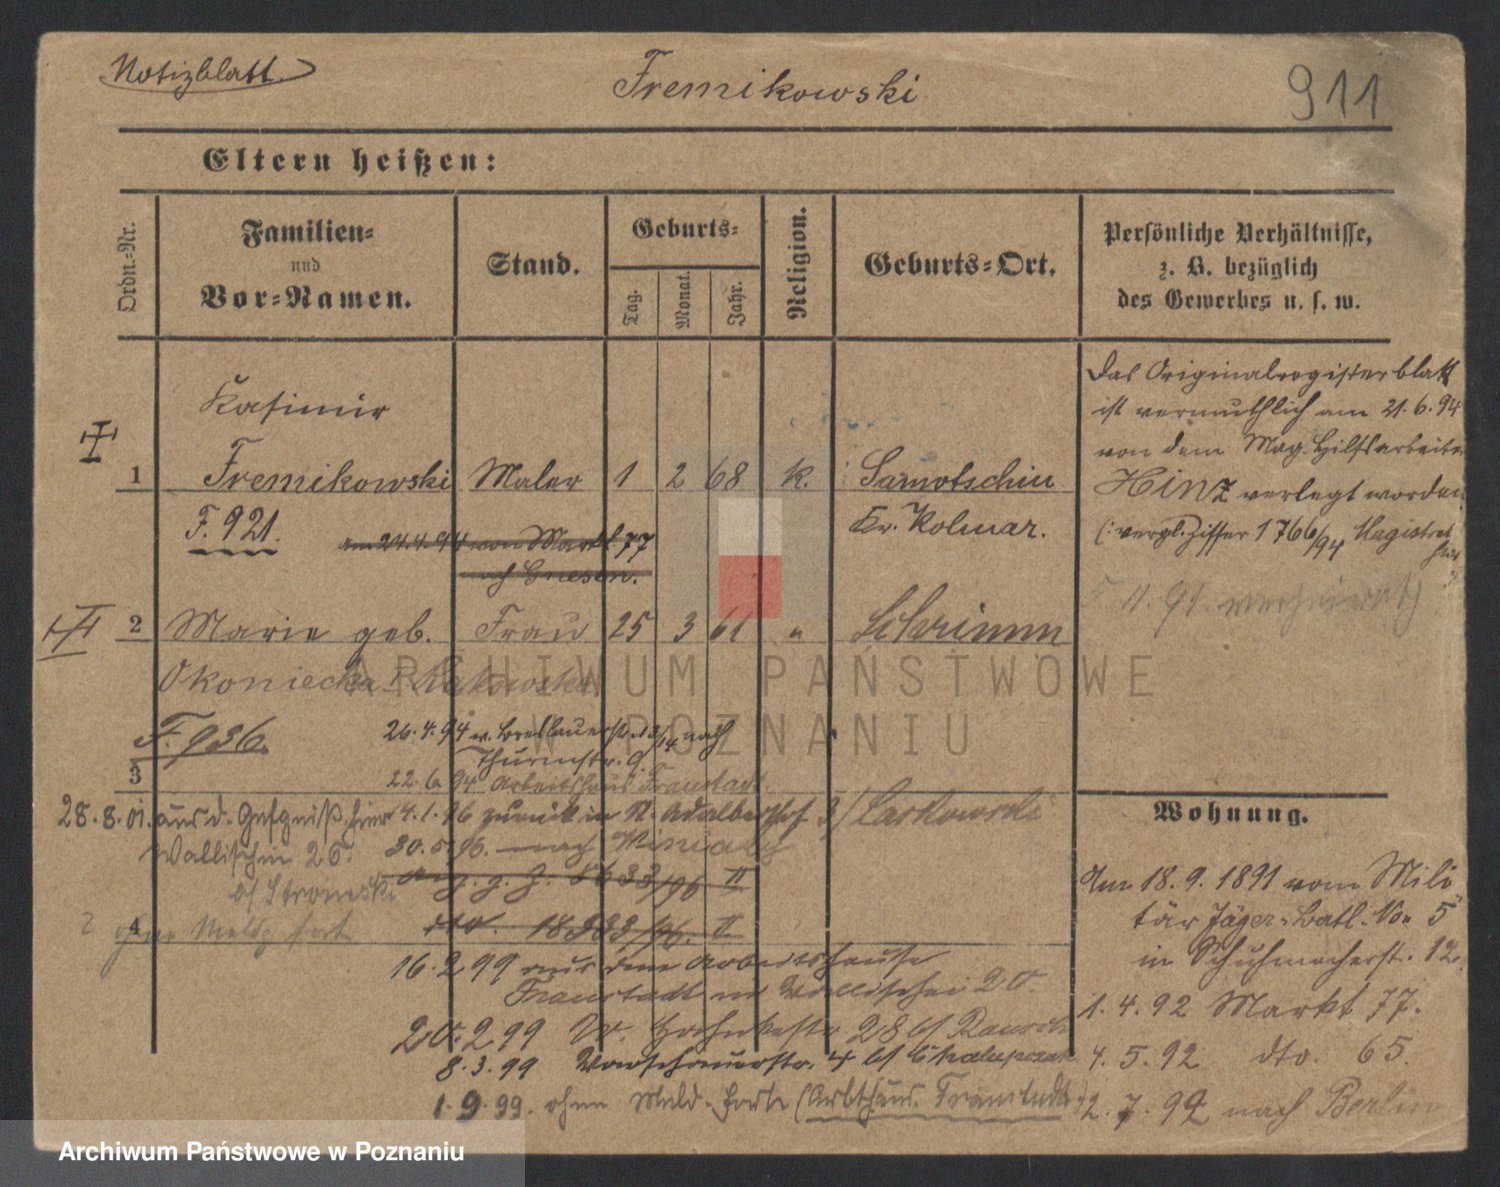 Notizblatt
Fremikowski
911
Eltern heißen:
Ordn.-Nr.
Familien-
und
Vor-Namen.
Stand.
Geburts-
Tag.
Monat.
Jahr.
Religion.
Geburts-Ort.
Persönliche Verhältnisse,
z. B. bezüglich
des Gewerbes u. s. w.
Kasimir
1 Fremikowski Maler 1 2 68 k. Samotschin
Kr. Kolmar.
F. 921.
am 24.4.94 von Markt 77
nach Gnesen.
2 Marie geb. Frau 25 3 61 " Schrimm
Okoniecka
F. 936.
26.4.94 v. Breslauerstr. 13/14 nach
Thurmstr. 9.
3
22.6.94 Arbeitshaus Fraustadt
28.8.01. aus d. Gefgniß hier
Wallischei 26.
b/ Stronski
4.1.96 zurück in St. Adalberthof 3/ Laskowski
30.5.96. nach Winiary
4
ohne Meldg fort
dto. 18333/96. II
16.2.99 aus dem Arbeitshause
Fraustadt in Wallischei 20.
20.2.99 28 b/
8.3.99 Warschauerstr. 4 b/
1.9.99. ohne Meld. forts (Arbthaus. Fraustadt)
Das Originalregisterblatt
ist vermuthlich am 21.6.94
von dem Mag. Hilfsarbeiter
Hinz verlegt worden
(: vergl. Ziffer 1766/94 Magistrat
11.91. verheirath
Wohnung.
Am 18.9.1891 vom Mili
tär Jäger-Batl. No 5
in Schuhmacherst. 12.
1.4.92 Markt 77.
4.5.92 dto. 65.
2.7.92 nach Berlin
ARCHIWUM PAŃSTWOWE
W POZNANIU
Archiwum Państwowe w Poznaniu